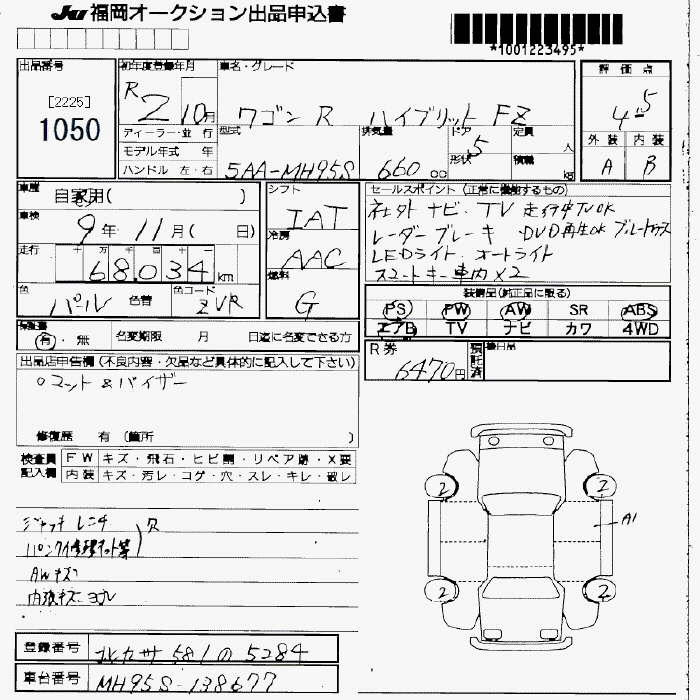 JU 福岡オークション出品申込書
*1001223495*
出品番号
[2225]
1050
初年度登録年月
R2 10月
車名・グレード
ワゴンR ハイブリット FZ
評価点
4.5
外装 内装
A B
ディーラー・並行
モデル年式 年
ハンドル 左・右
型式
5AA-MH95S
排気量
660 cc
ドア 5
形状
定員 人
積載 kg
車歴
自家用( )
車検
9年 11月( 日)
走行
十万 万 千 百 十 一
68,034 km
色
パール
色替
色コード
ZVR
シフト
IAT
冷房
AAC
燃料
G
セールスポイント(正常に機能するもの)
社外ナビ・TV 走行中TVOK
レーダーブレーキ DVD再生OK ブルートゥース
LEDライト オートライト
スマートキー車内×2
装備品(純正品に限る)
PS PW AW SR ABS
エアB TV ナビ カワ 4WD
保証書
有・無
名変期限 月 日迄に名変できる方
R券
6470円
預託済
出品店申告欄(不良内容・欠品など具体的に記入して下さい)
○マット&バイザー
修復歴 有(箇所 )
検査員記入欄
FW キズ・飛石・ヒビ割・リペア跡・X要
内装 キズ・汚レ・コゲ・穴・スレ・キレ・破レ
ジャッキ レンチ
パンク修理キット等 欠
AWキズ
内張キズ ヨゴレ
2 2
A1
2 2
登録番号
北九州 581 の 5284
車台番号
MH95S-138677